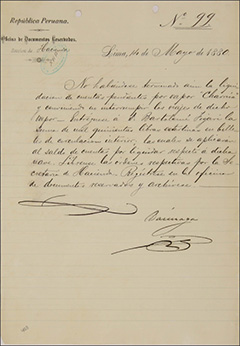 República Peruana.
Nº 99
Oficina de Documentos Reservados.
Hacienda
Lima, 14 de Mayo de 1880
No habiéndose terminado aun la liqui
dacion de cuentas pendientes del vapor "Chalaco"
y conviniendo no interrumpir los viajes de dicho
vapor - Entréguese á D. Bartolomé
suma de mil quinientas libras esterlinas en bille
tes de circulacion interior, las cuales se aplicaran
al saldo de cuentas por liquidar respecto á dicha
nave. Líbrense las órdenes respectivas por la Se
cretaría de Hacienda. Regístrese en la oficina
de documentos reservados y archívese.
Barinaga